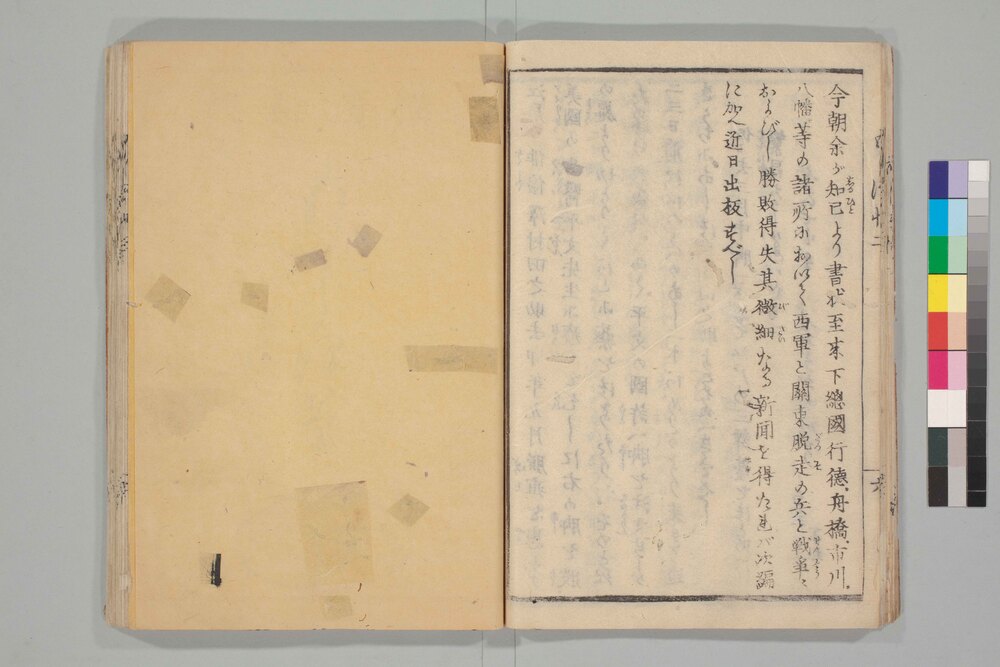 今朝余が知己より書状至来下總國行德、舟橋、市川、
八幡等の諸所において西軍と關東脱走の兵と戰爭に
およびし勝敗得失其微細なる新聞を得たれバ次編
に加へ近日出板すべし